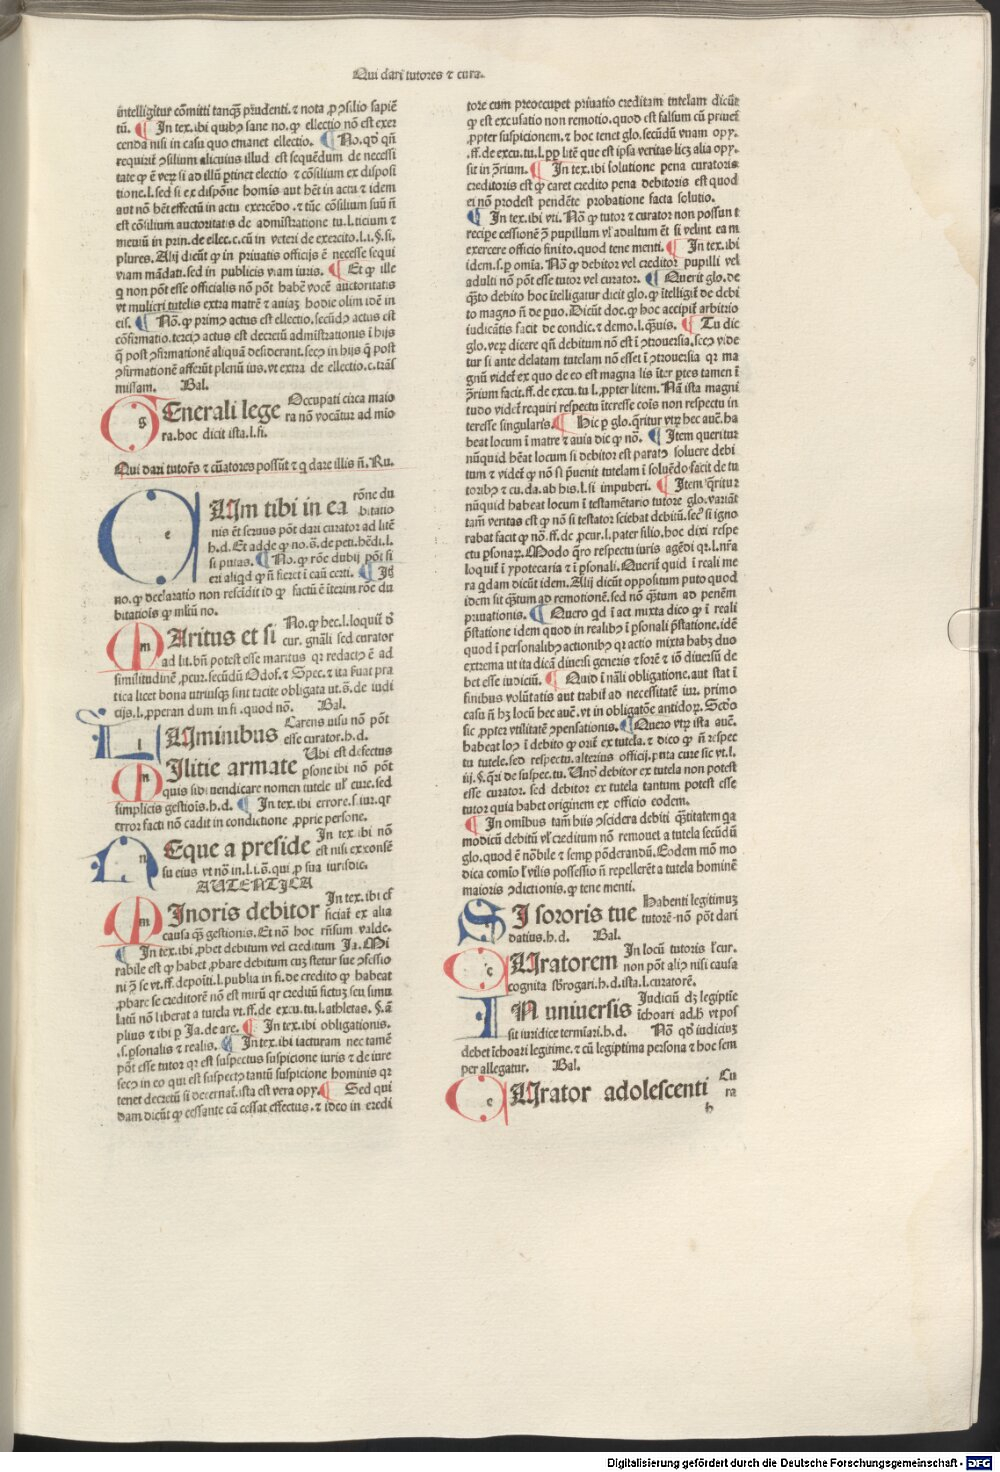 Qui dari tutores ⁊ cura.
intelligitur cōmitti tanqȝ prudenti.⁊ nota ꝓ ꝯsilio sapiē
tū. ¶ In tex.ibi quibꝰ sane no.ꝙ ellectio nō est exer
cenda nisi in casu quo emanet ellectio. ¶ No.qꝺ qn̄
requirit̄ ꝯsilium alicuius illud est sequēdum de necessi
tate
tione.l.sed si ex dispōne homīs aut hēt in actu ⁊ idem
aut nō hēt effectū in actu exercēdo.⁊ tūc cōsilium suū n̄
est cōsilium auctoritatis de admīstratione tu.l.ticium ⁊
meuiū in prin.de ellec.c.cū in veteri de exercito.l.i.§.si.
plures.Alij dicūt ꝙ in priuatis officijs ē necesse sequi
viam mādati.sed in publicis viam iuris. ¶ Et ꝙ ille
q̄ non pōt esse officialis nō pōt habē vocē auctoritatis
vt mulieri tutelis extra matrē ⁊ auiaȝ hodie olim idē in
eis. ¶ Nō.ꝙ primꝰ actus est ellectio.secūdꝰ actus est
cōfirmatio.terciꝰ actus est decretū admīstrationis ī hijs
q̄ post ꝯfirmationē aliquā desiderant.secꝰ in hijs q̄ post
ꝯfirmationē afferūt plenū ius.vt extra de ellectio.c.trās
missam. Bal.
gEnerali lege Occupati circa maio
ra nō vocātur ad mio
ra.hoc dicit ista.l.si.
Qui dari tutores ⁊ curatores possūt ⁊ q̄ dare illis n̄.Ru.
cUm tibi in ea rōne du
bitatio
nis ēt seruus pōt dari curator ad litē
h.d.Et adde ꝙ no.s̄.de peti.hēdi.l.
si putas. ¶ No.ꝙ rōe dubij pōt si
eri aliqꝺ ꝙ n̄ fieret ī cāu certi. ¶ Itē
no.ꝙ declaratio non rescidit id ꝙ factū ē īterim rōe du
bitatiōis ꝙ mltū no.
mAritus et si No.ꝙ hec.l.loquit̄
cur.gnāli sed curator
ad lit.bn̄ potest esse maritus qr redacꝰ ē ad
similitudinē ꝓcur.secūdū Odof.⁊ Spec.⁊ ita ẜuat pra
tica licet bona utriusqȝ sint tacite obligata ut.s̄.de iudi
cijs.l.ꝓperandum in fi.quod nō. Bal.
lUminibus Carens uisu nō pōt
esse curator.h.d.
mIlitie armate Ubi est defectus
psone ibi nō pōt
quis sibi uendicare nomen tutele ul' cure.sed
simplicis gestiōis.h.d. ¶ In tex.ibi errore.s.iur.qr
error facti nō cadit in condictione ꝓprie persone.
nEque a preside In tex.ibi nō
est nisi ex consē
su eius vt nō in.l.i.s̄.qui.ꝓ sua iurisdic.
AUTENTICA
mInoris debitor In tex.ibi ef
ficiat̄ ex alia
causa qȝ gestionis.Et nō hoc rn̄sum valde.
¶ In tex.ibi ꝓbet debitum vel creditum Ja.Mi
rabile est ꝙ habet ꝓbare debitum cuȝ stetur sue ꝯfessio
ni ꝯ̄ se vt.ff.depoīti.l.publia in fi.de credito ꝙ habeat
ꝓbare se creditorē nō est mirū qr creditū fictuȝ seu simu
latū nō liberat a tutela vt.ff.de excu.tu.l.athletas.§.ā
plius ⁊ ibi p̄ Ja.de are. ¶ In tex.ibi obligationis.
.s.ꝑsonalis ⁊ realis. ¶ In tex.ibi iacturam nec tamē
pōt esse tutor qr est suspectus suspicione iuris ⁊ de iure
secꝰ in eo qui est suspectꝰ tantū suspicione hominis qr
tenet decretū si decernat.ista est vera opꝫ. ¶ Sed qui
dam dicūt ꝙ cessante cā cessat effectus.⁊ ideo in credi
tore cum preoccupet priuatio creditam tutelam dicūt
ꝙ est excusatio non remotio.quod est falsum cū priuet̄
ꝓpter suspicionem.⁊ hoc tenet glo.secūdū vnam opꝫ.
.ff.de excu.tu.l.ꝓp̄ litē que est ipsa veritas licȝ alia opꝫ.
sit in ꝯ̄rium. ¶ In tex.ibi solutione pena curatoris
creditoris est ꝙ caret credito pena debitoris est quod
ei nō prodest pendēte probatione facta solutio.
¶ In tex.ibi vti.Nō ꝙ tutor ⁊ curator non possunt
recipe cessionē ꝯ̄ pupillum vl' adultum ēt si velint eam
exercere officio finito.quod tene menti. ¶ In tex.ibi
idem.s.ꝑ omīa.Nō ꝙ debitor vel creditor pupilli vel
adulti nō pōt esse tutor vel curator. ¶ Querit glo.de
quāto debito hoc ītelligatur dicit glo.ꝙ ītelligit̄ de debi
to magno n̄ de ꝑuo.Dicūt doc.ꝙ hoc accipit̄ arbitrio
iudicātis facit de condic.⁊ demo.l.quis. ¶ Tu dic
glo.verꝰ dicere qn̄ debitum nō est ī ꝯtrouersia.secꝰ vide
tur si ante delatam tutelam nō esset ī ꝯtrouersia qr ma
gnū videt̄ ex quo de eo est magna lis īter ꝑtes tamen ī
ꝯ̄rium facit.ff.de excu.tu.l.ꝓpter litem.Nā ista magni
tudo videt̄ requiri respectu īteresse cōis non respectu in
teresse singularis. ¶ Hic p̄ glo.q̄ritur vtȝ hec auc̄.ha
beat locum ī matre ⁊ auia dic ꝙ nō. ¶ Item queritur
nūquid hēat locum si debitor est paratꝰ soluere debi
tum ⁊ videt̄ ꝙ nō si ꝑuenit tutelam ī soluēdo facit de tu
toribꝰ ⁊ cu.da.ab his.l.si impuberi. ¶ Item q̄ritur
nūquid habeat locum ī testamētario tutore glo.variāt
tam̄ veritas est ꝙ nō si testator sciebat debitū.secꝰ si igno
rabat facit ꝙ nō.ff.de ꝓcur.l.pater filio.hoc dixi respe
ctu ꝑsonaꝝ.Modo q̄ro respectu iuris agēdi qr.l.nr̄a
loquit̄ ī ypotecaria ⁊ ī ꝑsonali.Querit̄ quid ī reali me
ra qꝺam dicūt idem.Alij dicūt oppositum puto quod
idem sit q̄tum ad remotionē.sed nō q̄tum ad penēm
priuationis. ¶ Quero qꝺ ī act̄ mixta dico ꝙ ī reali
p̄statione idem quod in realibꝰ ī ꝑsonali p̄statione.idē
quod ī personalibꝰ actionibꝰ qr actio mixta habȝ duo
extrema ut ita dicā diuersi generis ⁊ forē ⁊ iō diuersū de
bet esse iudiciū. ¶ Quid ī nāli obligatione.aut stat ī
finibus volūtatis aut trahit̄ ad necessitatē iur. primo
casu n̄ hȝ locū hec auc̄.vt in obligatōe antidoꝝ.Secꝺo
sic ꝓpter vtilitatē ꝯpensationis. ¶ Quero vtȝ ista auc̄.
habeat locꝰ ī debito ꝙ orit̄ ex tutela.⁊ dico ꝙ n̄ respec
tu tutele.sed respectu.alterius officij.puta cure sic vt.l.
iij.§.q̄ri de suspec.tu.Unꝺ debitor ex tutela non potest
esse curator. sed debitor ex tutela tantum potest esse
tutor quia habet originem ex officio eodem.
¶ In omībus tam̄ hiis ꝯsidera debiti q̄titatem qa
modicū debitū vl' creditum nō remouet a tutela secūdū
glo.quod ē nōbile ⁊ semꝑ pōderandū.Eodem mō mo
dica comīo l' vilis possessio n̄ repelleret̄ a tutela hominē
maioris ꝯdictionis.ꝙ tene menti.
SI sororis tue Habenti legitimuȝ
tutorē nō pōt dari
datiuus.h.d. Bal.
cUratorem In locū tutoris l' cur.
non pōt aliꝰ nisi causa
cognita sb̄rogari.h.d.ista.l.curatorē.
IN uniuersis Judiciū dȝ legiptīe
īchoari ad.h̄ vt pos
sit iuridice termīari.h.d. Nō qꝺ iudiciuȝ
debet īchoari legitime.⁊ cū legiptima persona ⁊ hoc sem
per allegatur. Bal.
cUrator adolescenti Cu
ra
h
Digitalisierung gefördert durch die Deutsche Forschungsgemeinschaft - DFG